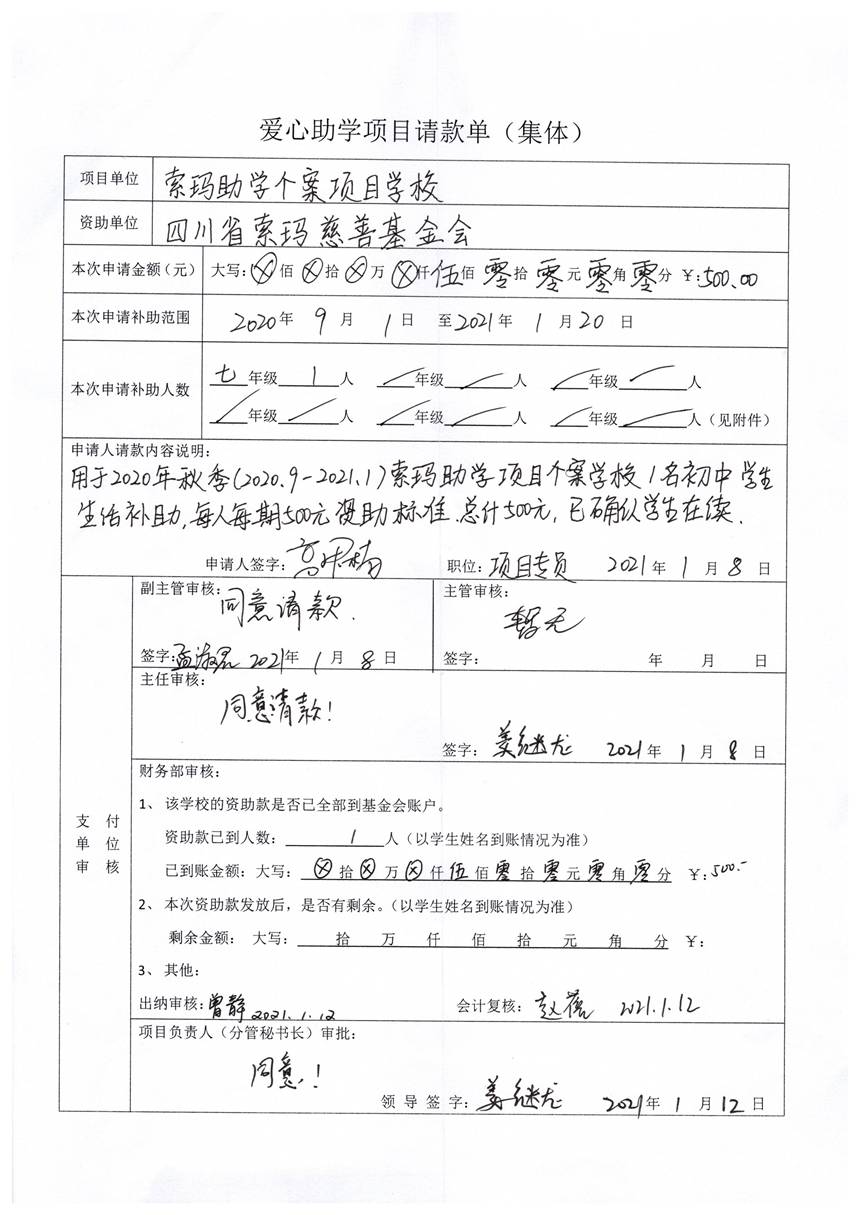 爱心助学项目请款单（集体）
项目单位 索玛助学个案项目学校
资助单位 四川省索玛慈善基金会
本次申请金额（元） 大写：⊗佰⊗拾⊗万⊗仟伍佰零拾零元零角零分 ￥：500.00
本次申请补助范围 2020年9月1日 至2021年1月20日
七年级1人 ／年级／人 ／年级／人
本次申请补助人数
／年级／人 ／年级／人 ／年级／人（见附件）
申请人请款内容说明：
用于2020年秋季(2020.9-2021.1)索玛助学项目个案学校1名初中学生
生活补助,每人每期500元资助标准.总计500元,已确认学生在续.
申请人签字： 职位：项目专员 2021年1月8日
副主管审核： 主管审核：
同意请款. 暂无
签字：孟淑君 2021年1月8日 签字： 年 月 日
主任审核：
同意请款!
签字：姜继尤 2021年1月8日
支付
单位
审核
财务部审核：
1、 该学校的资助款是否已全部到基金会账户。
资助款已到人数：1人（以学生姓名到账情况为准）
已到账金额：大写：⊗拾⊗万⊗仟伍佰零拾零元零角零分 ￥：500.-
2、 本次资助款发放后，是否有剩余。（以学生姓名到账情况为准）
剩余金额： 大写： 拾 万 仟 佰 拾 元 角 分 ￥：
3、 其他：
出纳审核：曾静 2021.1.12 会计复核：赵蓓 2021.1.12
项目负责人（分管秘书长）审批：
同意!
领导签字：姜继尤 2021年1月12日